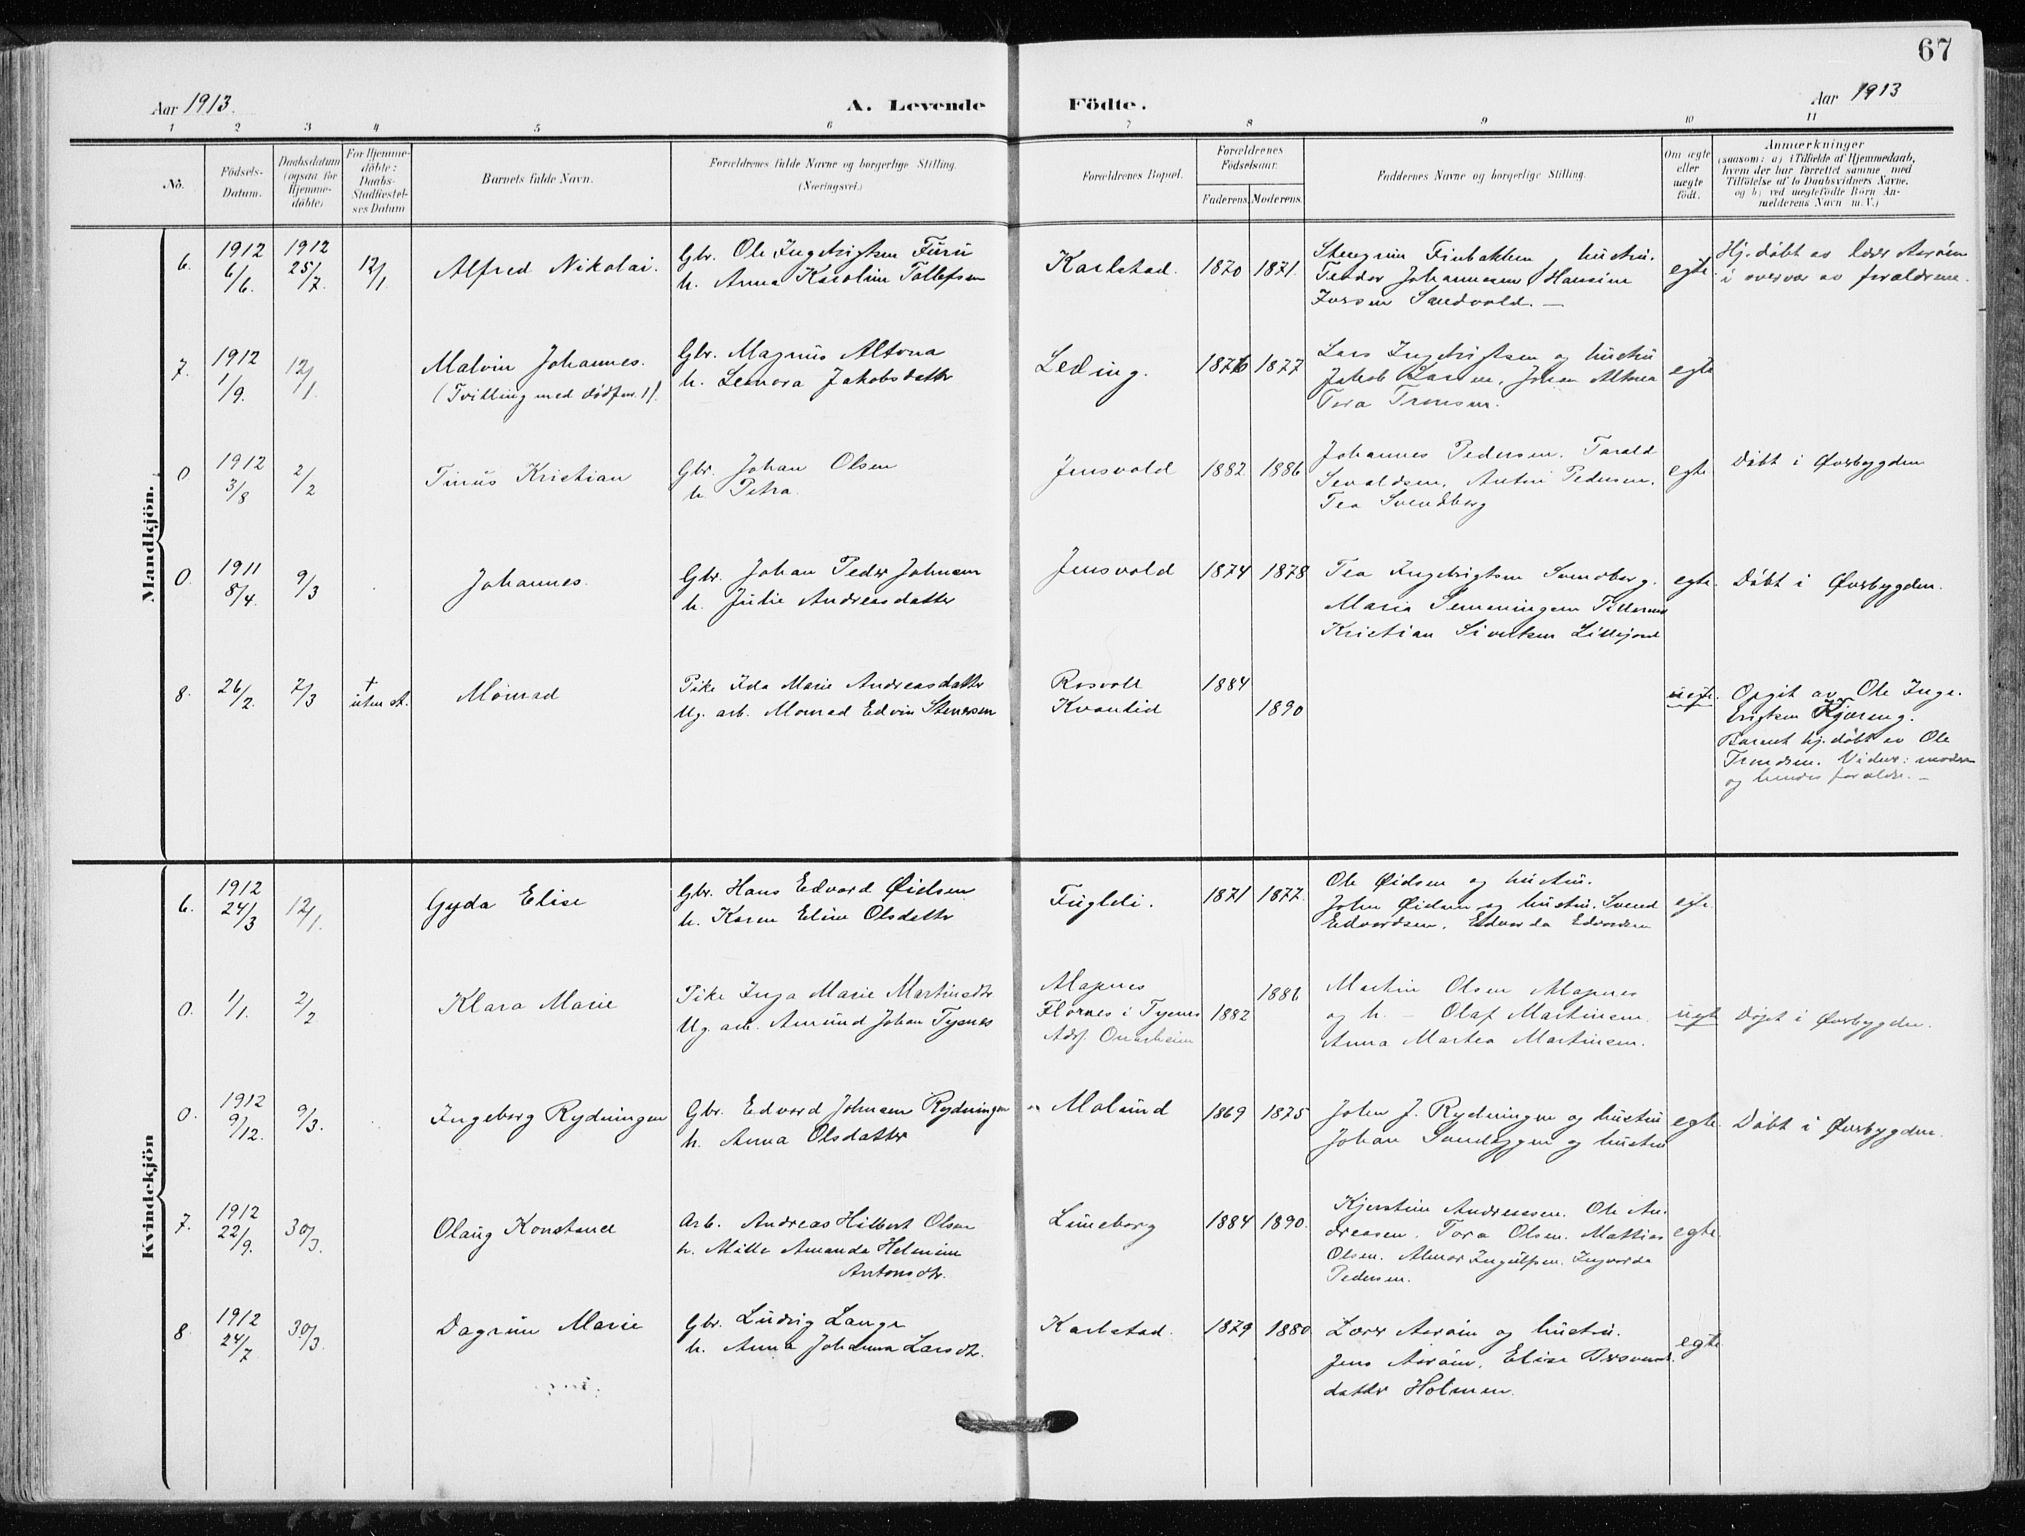 67
Aar 1913.
A. Levende Födte.
Aar 1913
1 2 3 4 5 6 7 8 9 10 11
No.
Födsels-
Datum.
Daabsdatum
(ogsaa for
Hjemme-
döbte)
For Hjemme-
döbte:
Daabs-
Stadfæstel-
ses Datum
Barnets fulde Navn.
Forældrenes fulde Navne og borgerlige Stilling.
(Næringsvei.)
Forældrenes Bopæl.
Forældrenes
Födselsaar.
Faderens. Moderens.
Faddernes Navne og borgerlige Stilling.
Om ægte
eller
uægte
födt.
Anmærkninger
(saasom: a) i Tilfælde af Hjemmedaab,
hvem der har forrettet samme, med
Tilföielse af to Daabsvidners Navne,
og b) ved uægtefödte Börn An-
melderens Navn m. V.)
Mandkjön.
6. 1912 6/6. 1912 25/7. 12/1 Alfred Nikolai.
Gbr. Ole Ingebrigtsen Furu
h. Anna Karoline Tollefsen
Karlstad. 1870 1871.
Steingrim Finbakken, hustru.
Teodor Johannesen, Hansine
Iversen Sandvold. —
egte
Hj. døbt av lærer Aarøen
i overvær av forældrene.
7. 1912 1/9. 12/1. Malvin Johannes.
(Tvilling med dødfm. 1).
Gbr. Magnus Altona
h. Leonora Jakobsdatter
Leding. 1876 1877
Lars Ingebrigtsen og hustru
Jakob Larsen, Johan Altona
Tora Tronsen.
egte
0 1912 3/8 2/2 Tinus Kristian
Gbr. Johan Olsen
h. Petra.
Jensvold 1882 1886
Johannes Pedersen. Tarald
Sevaldsen. Antin Pedersen.
Tea Svendberg
egte. Døbt i Øverbygden
0. 1911 8/4. 9/3 Johannes.
Gbr. Johan Peder Johnsen
h. Julie Andreasdatter
Jensvold 1874 1878
Tea Ingebrigtsen Svendberg.
Maria Semmingsen
Kristian Sivertsen Lillejord
egte. Døbt i Øverbygden.
8. 26/2. 7/3 † uten st. Monrad
Pike Ida Marie Andreasdatter
Ug. arb. Monrad Edvin Stenersen
Rosvoll
Kvantid
1884
1890
uegte.
Opgit av Ole Inge-
brigtsen Kjæreng.
Barnet hj. døbt av Ole
Trondsen. Vidner: moderen
og hendes forældre. —
Kvindekjön
6. 1912 24/3 12/1. Gyda Elise
Gbr. Hans Edvard Øidsen
h. Karen Eline Olsdatter
Fugleli. 1871 1877.
Ole Øidsen og hustru.
John Øidsen og hustru. Svend
Edvardsen. Edvarda Edvardsen
egte.
0. 1/1. 2/2 Klara Marie
Pike Inga Marie Martinsdtr
Ug. arb. Amund Johan Tysnes
Alapnes
Flornes i Tysnes
1882 1886
Martin Olsen Alapnes
og h. — Olaf Martinsen.
Anna Martea Martinsen.
uegt Døpt i Øverbygden.
0. 1912 9/12. 9/3. Ingeborg Rydningen
Gbr. Edvard Johnsen Rydningen
h. Anna Olsdatter
Molund 1869 1875
John J. Rydningen og hustru
Johan og hustru
egte. Døbt i Øverbygden.
7. 1912 22/9. 30/3. Olaug Konstance
Arb. Andreas Hilbert Olsen
h. Milla Amanda Helmine
Antonsdtr.
Luneborg 1884 1890.
Kjerstine Andreassen. Ole An-
dreasen. Tora Olsen. Mattias
Olsen. Almar Ingulfsen. Ingvarda
Pedersen.
egte.
8. 1912 24/7 30/3. Dagrun Marie
Gbr. Ludvig Lange
h. Anna Johanna Larsdtr.
Karlstad. 1879 1880.
Lærer Aarøen og hustru.
Jens Aarøen. Elise
datter Holmen.
egte